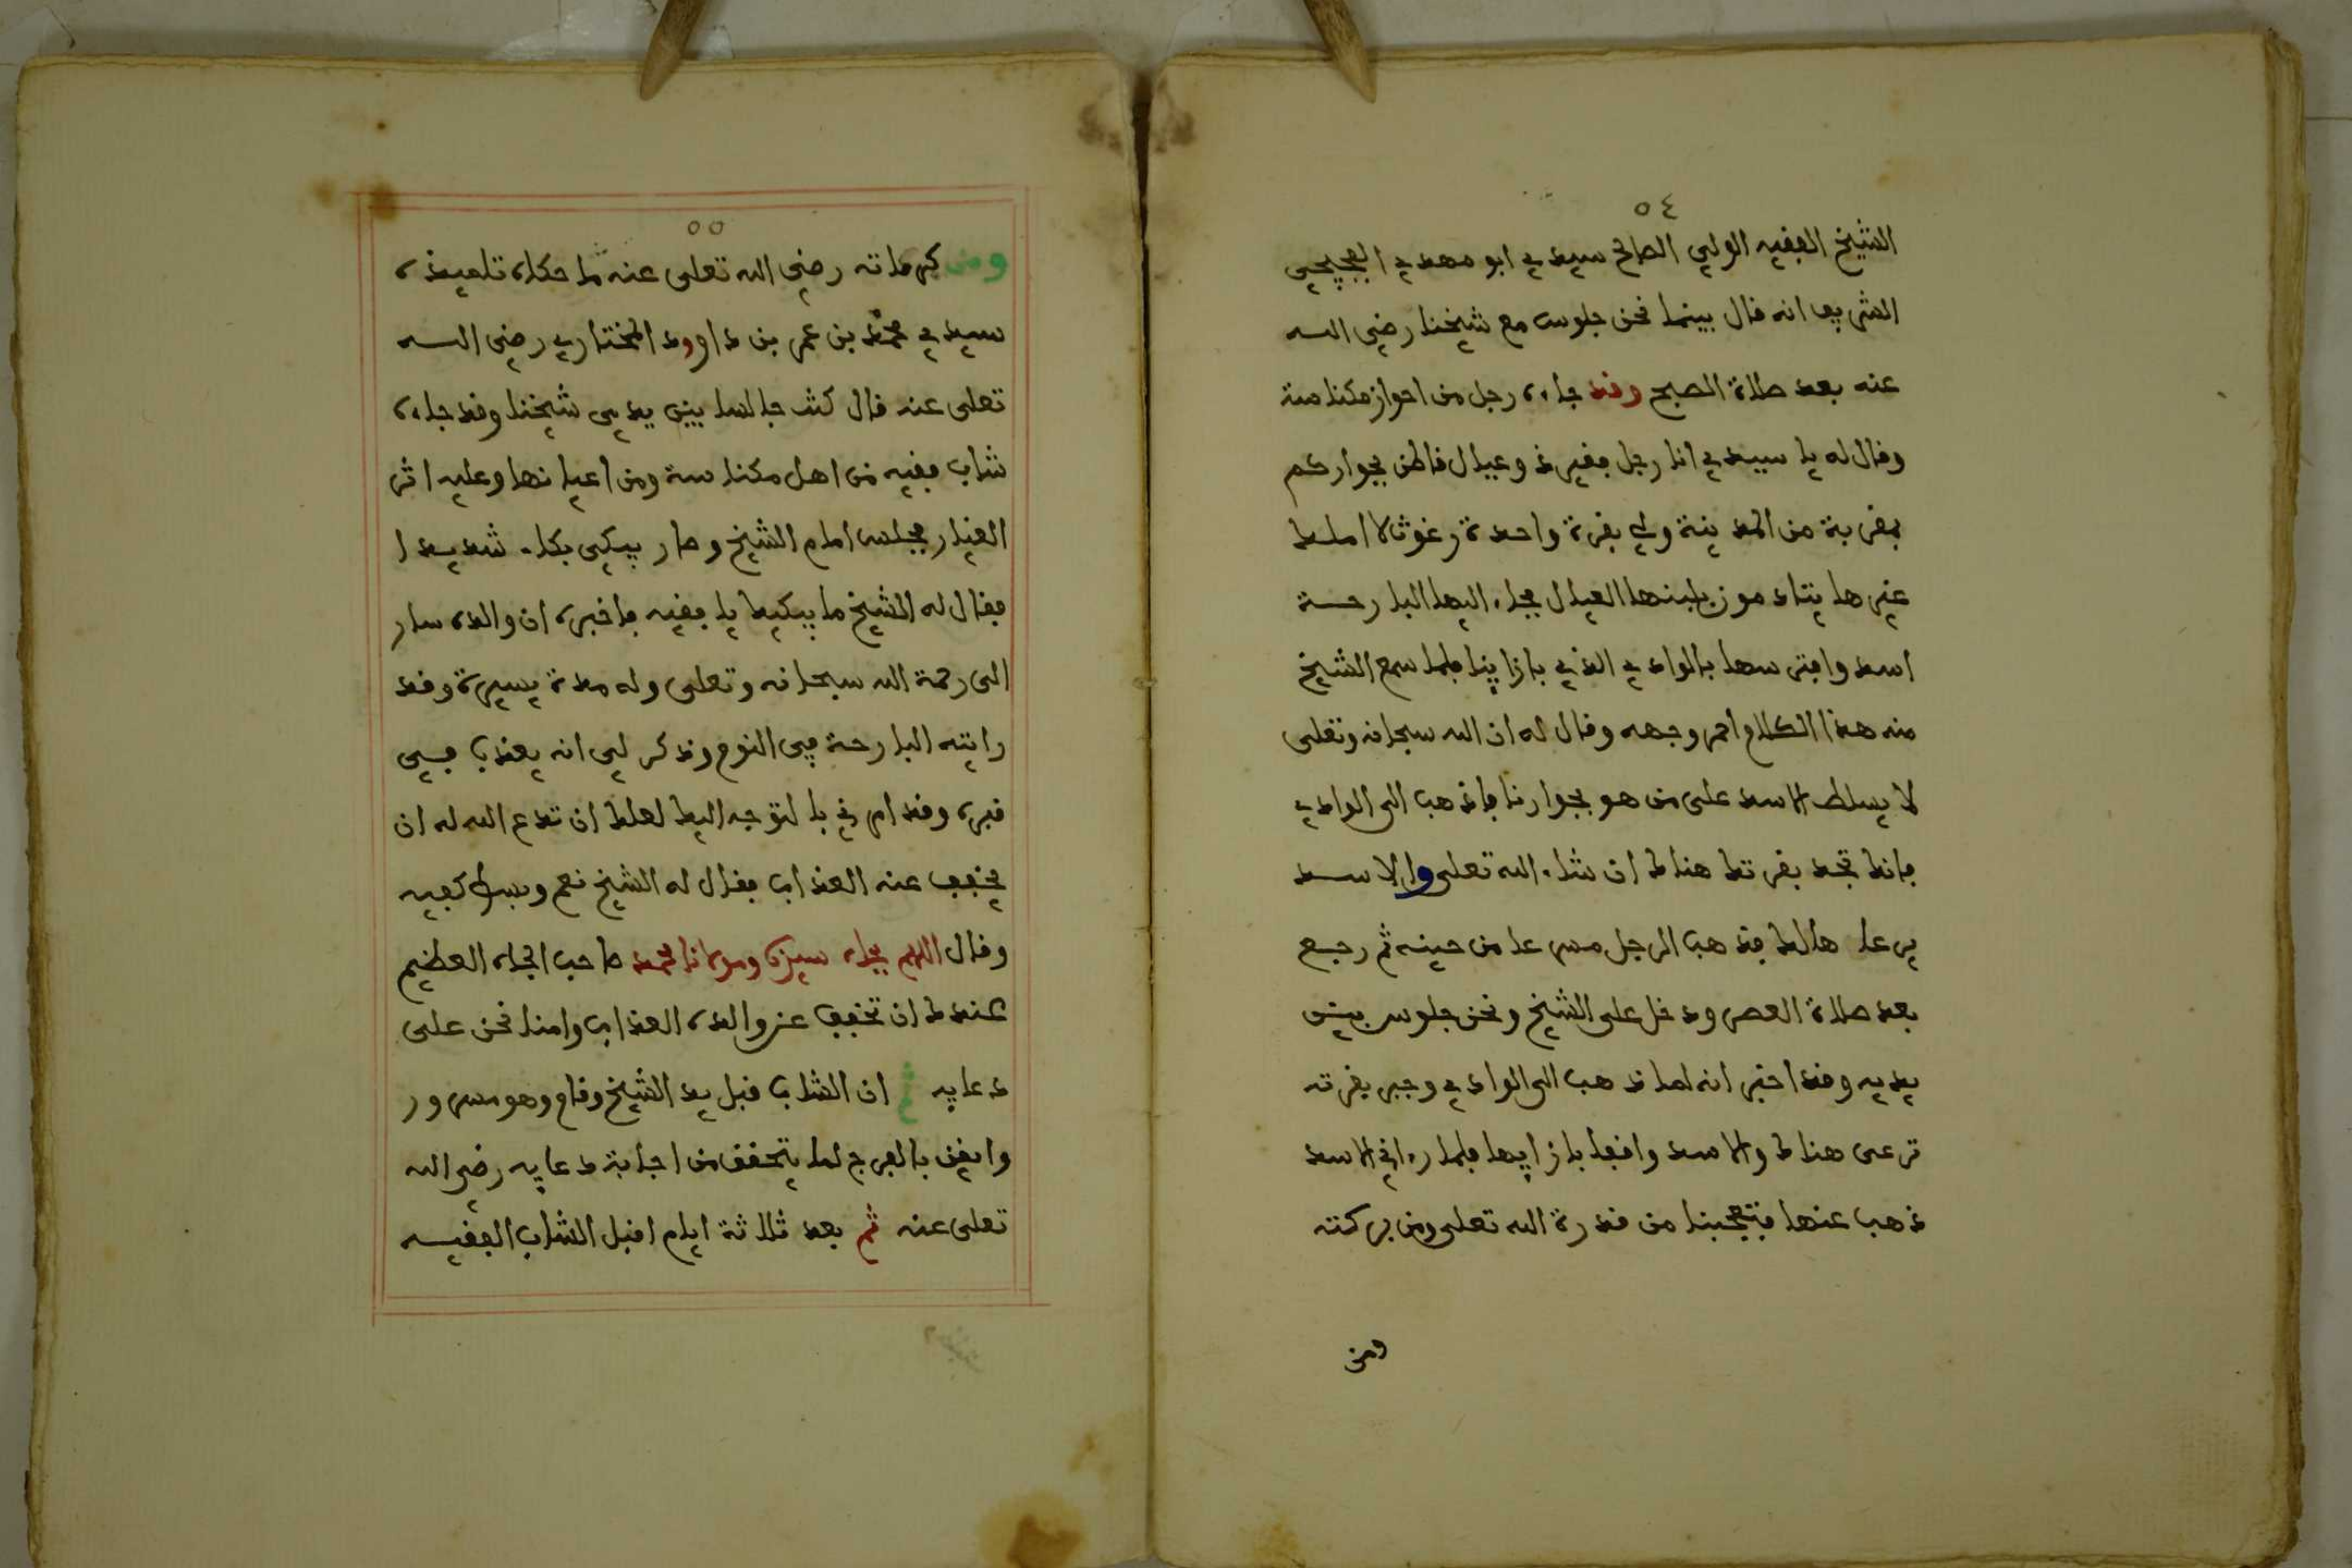 ٥٤
الشيخ الفقيه الولي الصالح سيدي ابو مهدي الفجيجي
الشريف انه قال بينما نحن جلوس مع شيخنا رضي الله
عنه بعد صلاة الصبح وقد جاءه رجل من احواز مكناسة
وقال له يا سيدي انا رجل فقير ذو عيال قاطن بجواركم
بقربة من المدينة ولي بقرة واحدة رغوث لا املك
غيرها يتادمون بلبنها العيال فجاء اليها البارحة
اسد وافترسها بالوادي الذي بازاينا فلما سمع الشيخ
منه هذا الكلام احمر وجهه وقال له ان الله سبحانه وتعلى
لا يسلط الاسد على من هو بجوارنا فاذهب الى الوادي
فانك تجد بقرتك هناك ان شاء الله تعلى والاسد
يرعا هالك فذهب الرجل مسرعا من حينه ثم رجع
بعد صلاة العصر ودخل على الشيخ ونحن جلوس بين
يديه وقد اخبر انه لما ذهب الى الوادي وجبر بقرته
ترعى هناك والاسد واقفا بازايها فلما رءاني الاسد
ذهب عنها فتعجبنا من قدرة الله تعلى ومن بركته
ومن
٥٥
ومن كراماته رضي الله تعلى عنه ما حكاه تلميذه
سيدي محمد بن عمر بن داوود المختاري رضي الله
تعلى عنه قال كنت جالسا بين يدي شيخنا وقد جاءه
شاب فقيه من اهل مكناسة ومن اعيانها وعليه اثر
الغيار فجلس امام الشيخ وصار يبكي بكاء شديدا
فقال له الشيخ ما يبكيك يا فقيه فاخبره ان والده سار
الى رحمة الله سبحانه وتعلى وله مدة يسيرة وقد
رايته البارحة في النوم وذكر لي انه يعذب في
قبره وقد امرني بالتوجه اليك لعلك ان تدع الله له ان
يخفف عنه العذاب فقال له الشيخ نعم وبسط كفيه
وقال اللهم بجاه سيدنا ومولانا محمد صاحب الجاه العظيم
عندك ان تخفف عن والده العذاب وامنا نحن على
دعايه ثم ان الشاب قبل يد الشيخ وقام وهو مسرور
وايقن بالفرج لما يتحقق من اجابة دعايه رضي الله
تعلى عنه ثم بعد ثلاثة ايام اقبل الشاب الفقيه